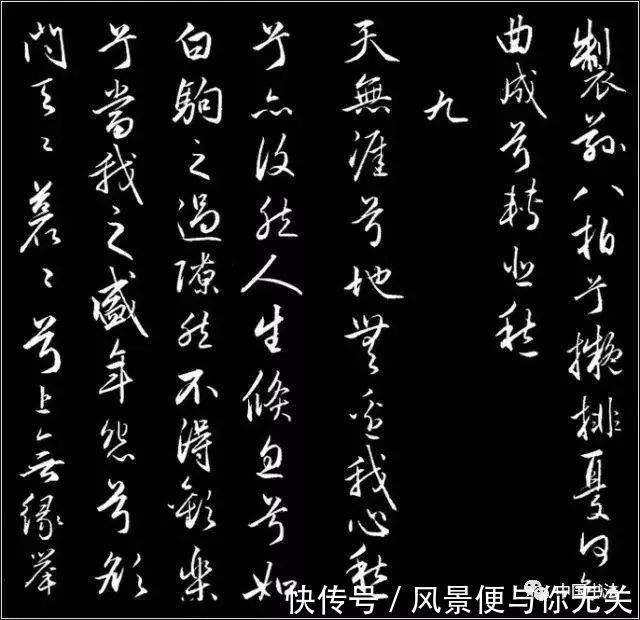 製茲八拍兮擬排憂何
曲成兮轉悲愁
九
天無涯兮地無邊我心愁
兮亦復然人生倏忽兮如
白駒之過隙然不得歡樂
兮當我之盛年怨兮欲
問天〻蒼〻兮上無緣舉
中国书法
快传号 / 风景便与你无关